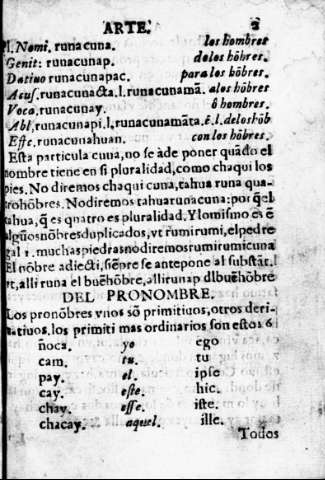 ARTE. 2
l. Nomi. runacuna. los hombres
Genit: runacunap. delos hõbres.
Datiuo runacunapac. para los hõbres.
Acus. runacunacta.l.runacunamã. alos hõbres
Voca, runacunay. ô hombres.
Abl, runacunapi.l,runacunamãta.ẽ.l.deloshõb
Effe. runacunahuan. con los hõbres.
Esta particula cuna, no se àde poner quãdo el
nombre tiene en si pluralidad, como chaqui los
pies. No diremos chaqui cuna, tahua runa qua-
trohõbres. Nodiremos tahuarunacuna: por q̃el
tahua, q̃ es quatro es pluralidad. Ylomismo es ẽ
algũosnõbresduplicados, vt rumirumi, elpedre
gal l. muchaspiedrasnodiremosrumirumicuna
El nõbre adiecti, siẽpre se antepone al substãt. l
vt, alli runa el buẽhõbre, allirunap dlbuẽhõbre
DEL PRONOMBRE.
Los pronõbres vnos sõ primitiuos, otros deri-
uatiuos, los primiti mas ordinarios son estos 6
ñoca. yo ego
cam. tu. tu
pay. el. ipse
cay. este. hic.
chay. esse. iste.
chacay. aquel. ille.
Todos